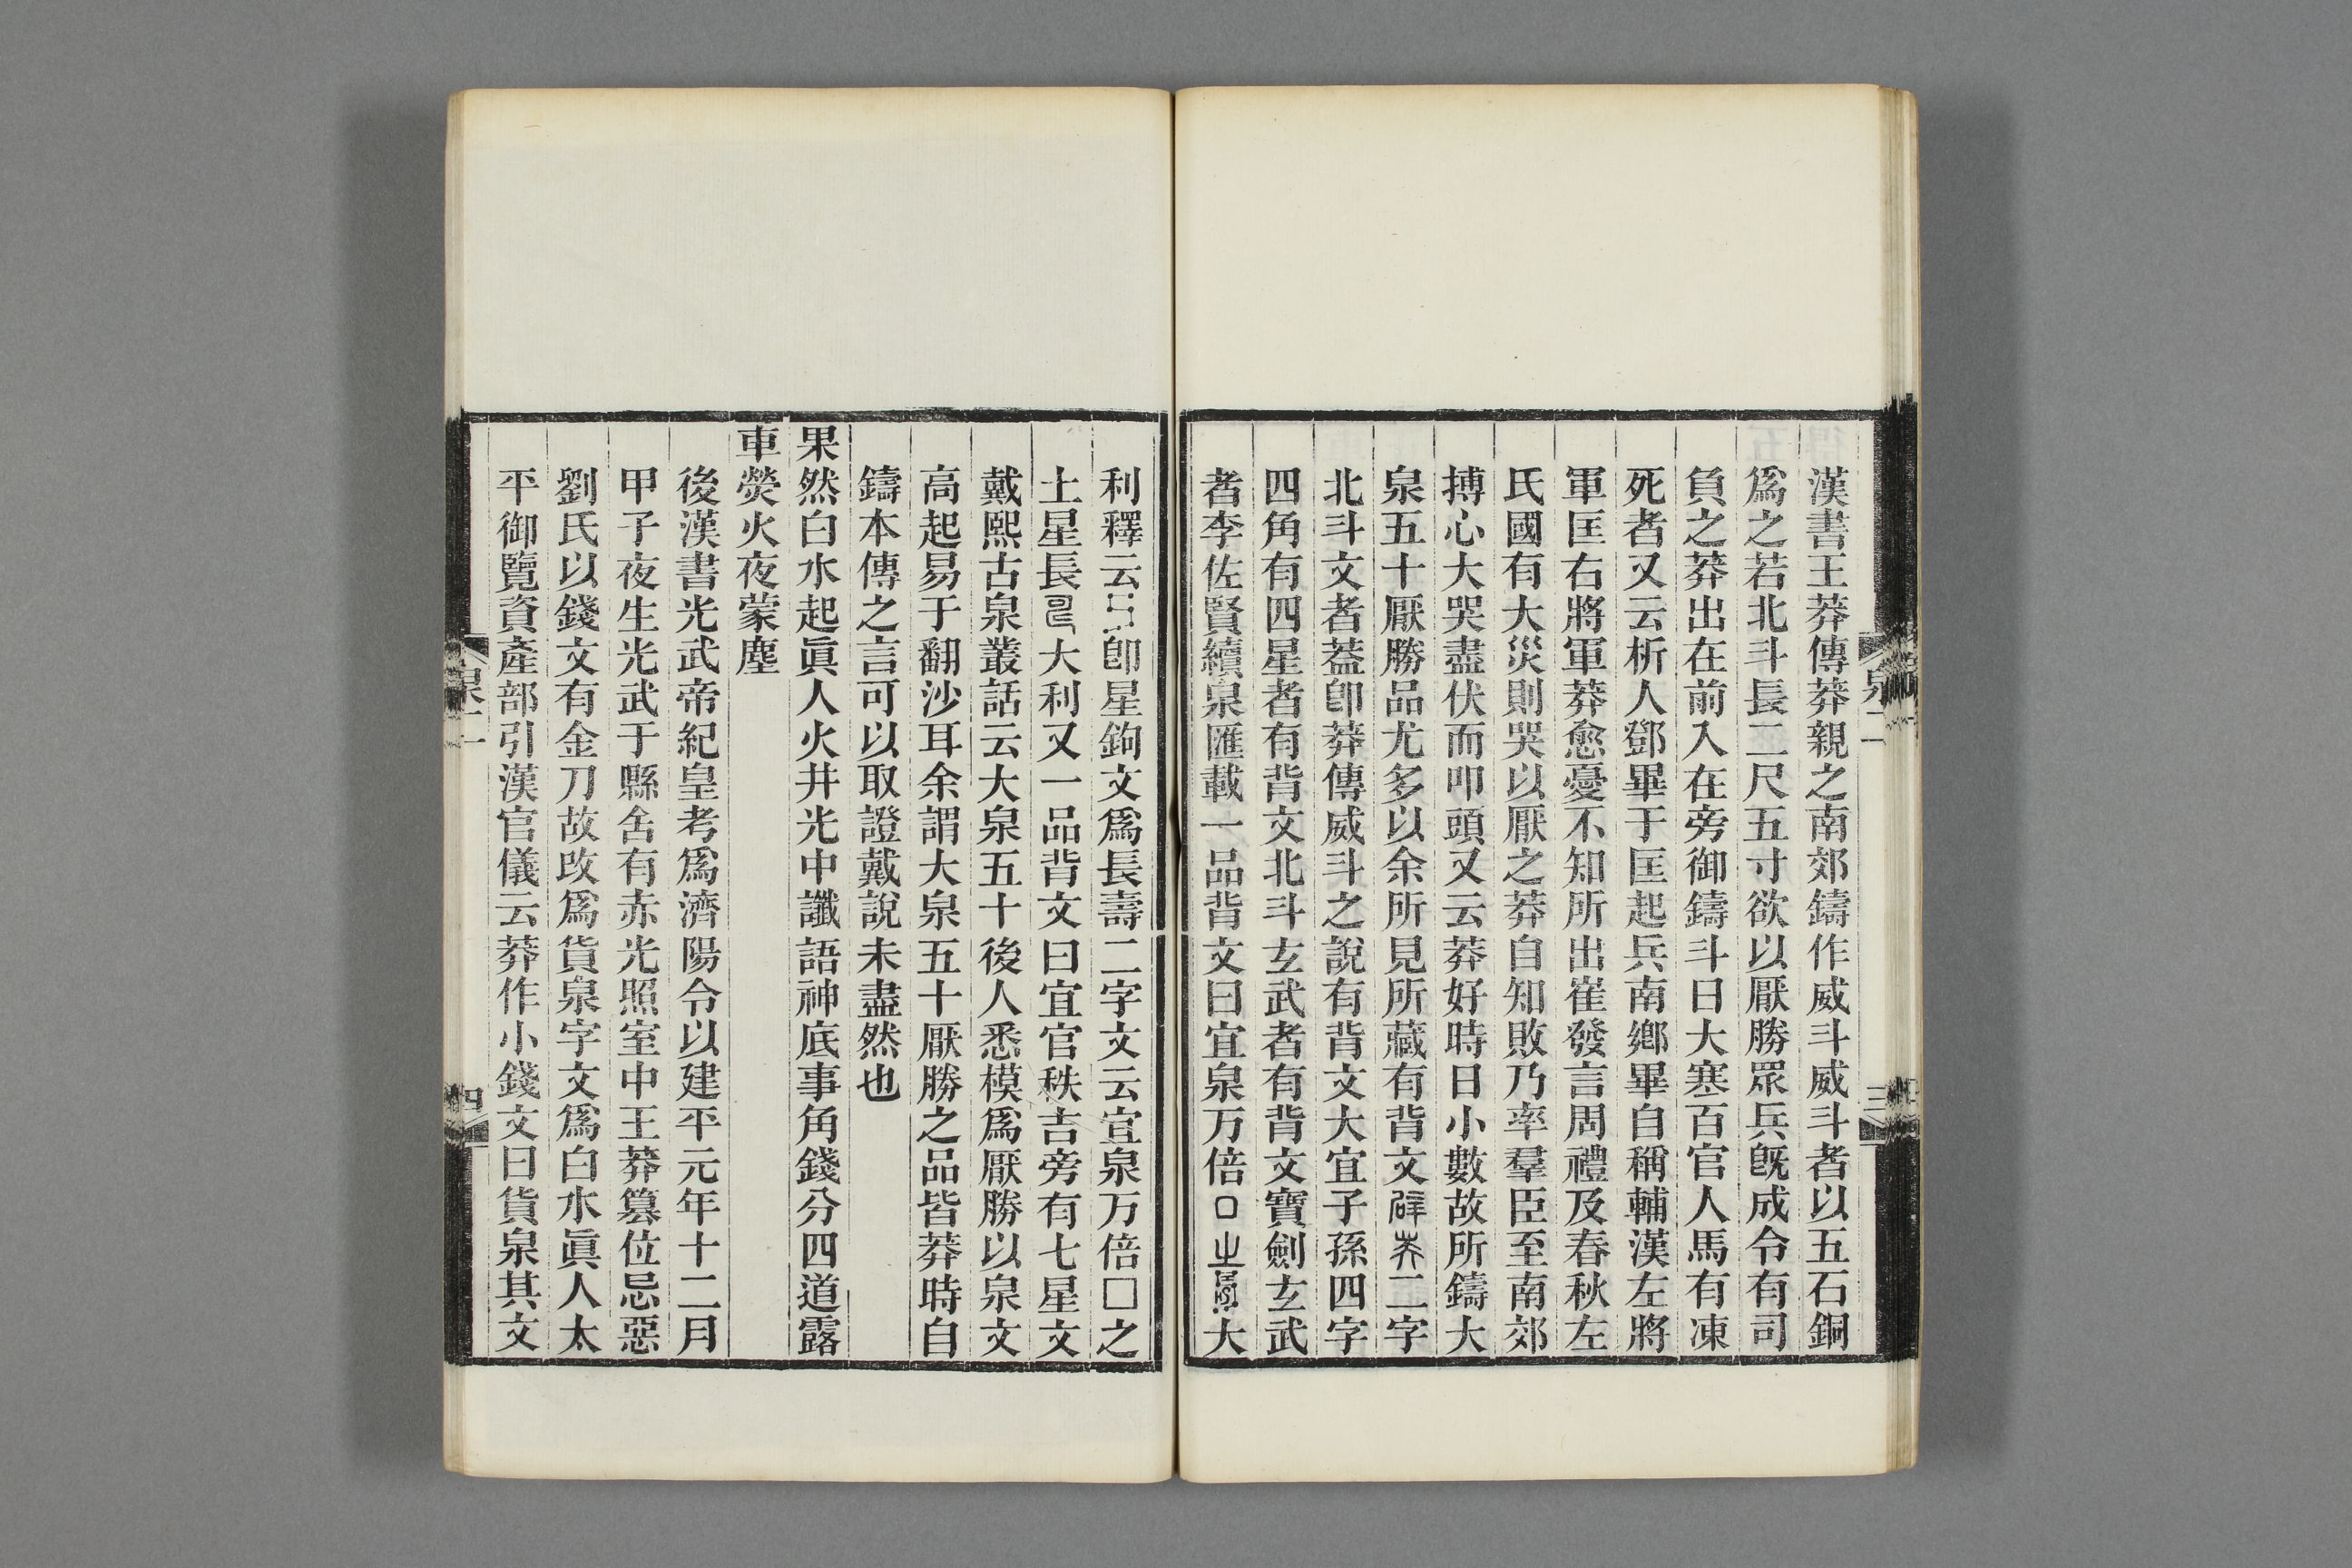 漢書王莽傳莽親之南郊鑄作威斗威斗者以五石銅
爲之若北斗長二尺五寸欲以厭勝眾兵旣成令有司
負之莽出在前入在旁御鑄斗日大寒百官人馬有凍
死者又云析人鄧畢于匡起兵南鄉畢自稱輔漢左將
軍匡右將軍莽愈憂不知所出崔發言周禮及春秋左
氏國有大災則哭以厭之莽自知敗乃率羣臣至南郊
搏心大哭盡伏而叩頭又云莽好時日小數故所鑄大
泉五十厭勝品尤多以余所見所藏有背文辟莽二字
北斗文者葢卽莽傳威斗之說有背文大宜子孫四字
四角有四星者有背文北斗玄武者有背文寶劍玄武
者李佐賢續泉匯載一品背文曰宜泉万倍口㞢大
利釋云卽星鉤文爲長壽二字文云宣泉万倍□之
土星長大利又一品背文曰宜官秩吉旁有七星文
戴熙古泉叢話云大泉五十後人悉模爲厭勝以泉文
高起易于翻沙耳余謂大泉五十厭勝之品皆莽時自
鑄本傳之言可以取證戴說未盡然也
果然白水起眞人火井光中讖語神底事角錢分四道露
車熒火夜蒙塵
後漢書光武帝紀皇考爲濟陽令以建平元年十二月
甲子夜生光武于縣舍有赤光照室中王莽篡位忌惡
劉氏以錢文有金刀故改爲貨泉字文爲白水眞人太
平御覽資產部引漢官儀云莽作小錢文曰貨泉其文
泉二
三
泉二
四